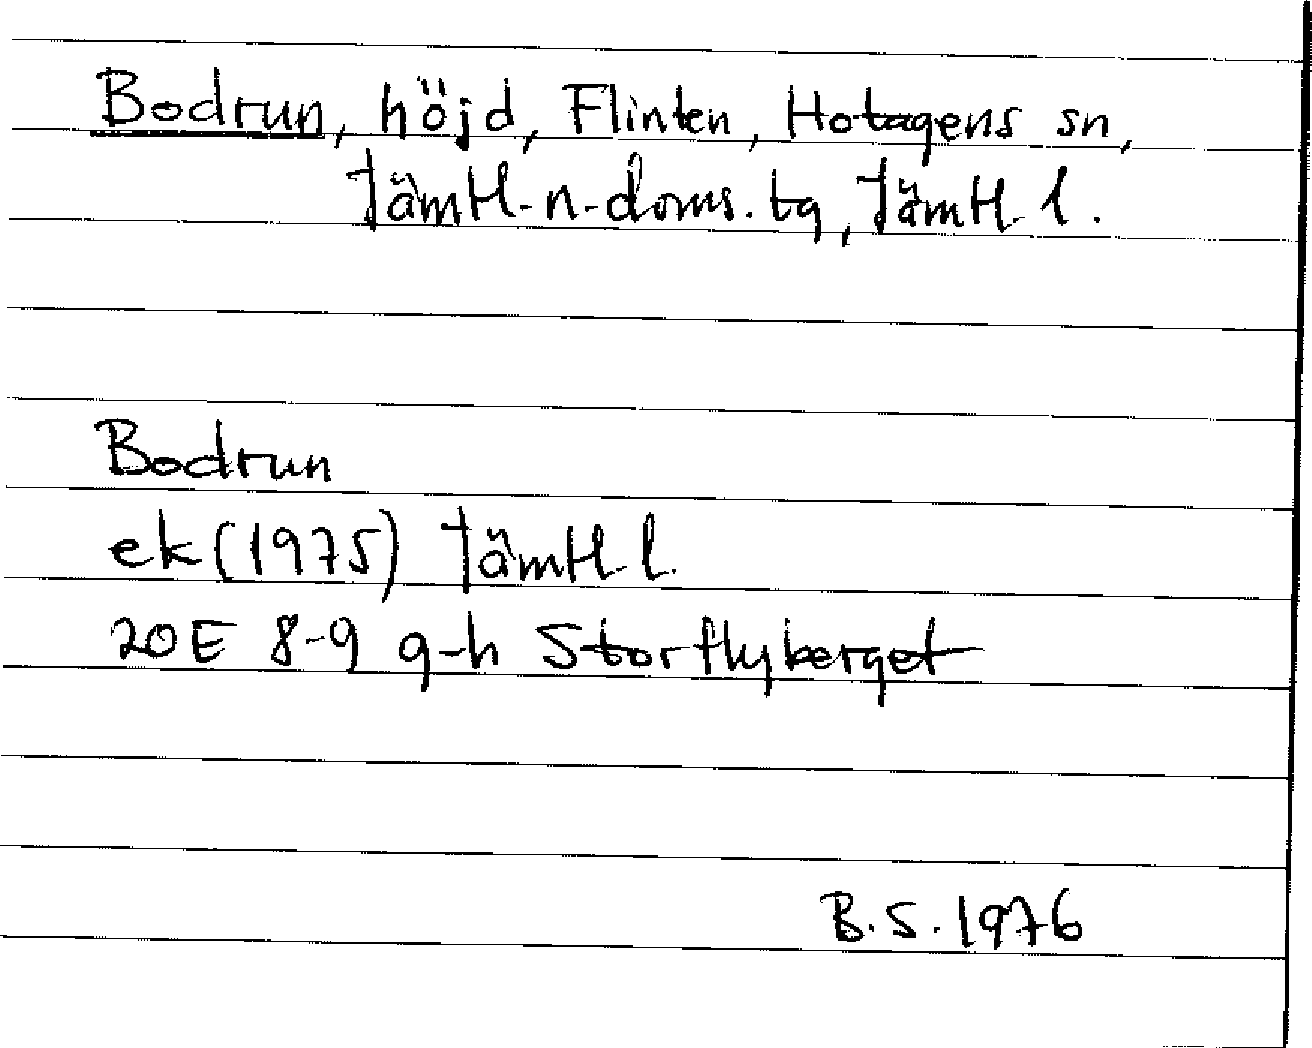 Bodrun, höjd, Flinten, Hotagens sn,
Jämtl-n-doms. tg, Jämtl. l.
Bodrun
ek (1975) Jämtl. l.
20E 8-9 g-h Storflyberget
B.S. 1976